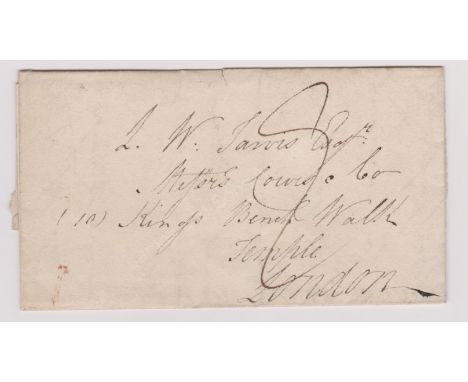 L. W. Jarvis Esqr.
Messrs Cowie & Co
(10) Kings Bench Walk
Temple
London